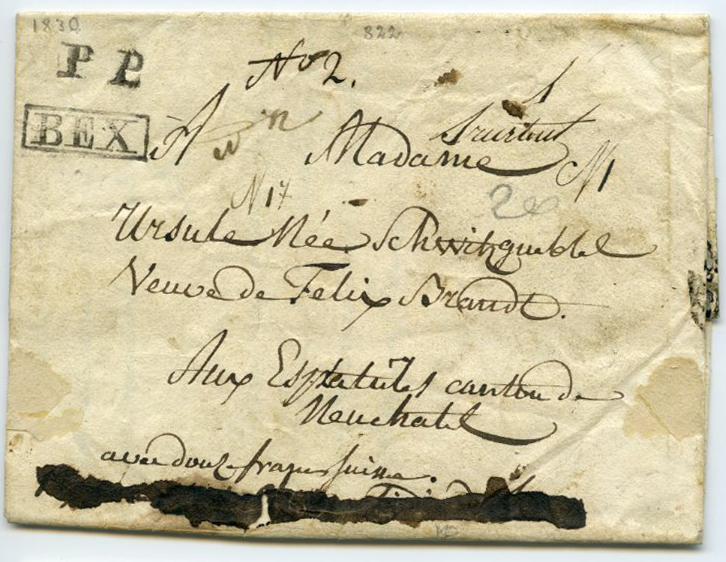 1830
822
P P
BEX
No 2.
A Madame
N 17
20
Ursule Née Schwitzguebbel
Veuve de Felix Brandt.
Aux Esplatures canton de
Neuchatel
avec douze francs suisse.